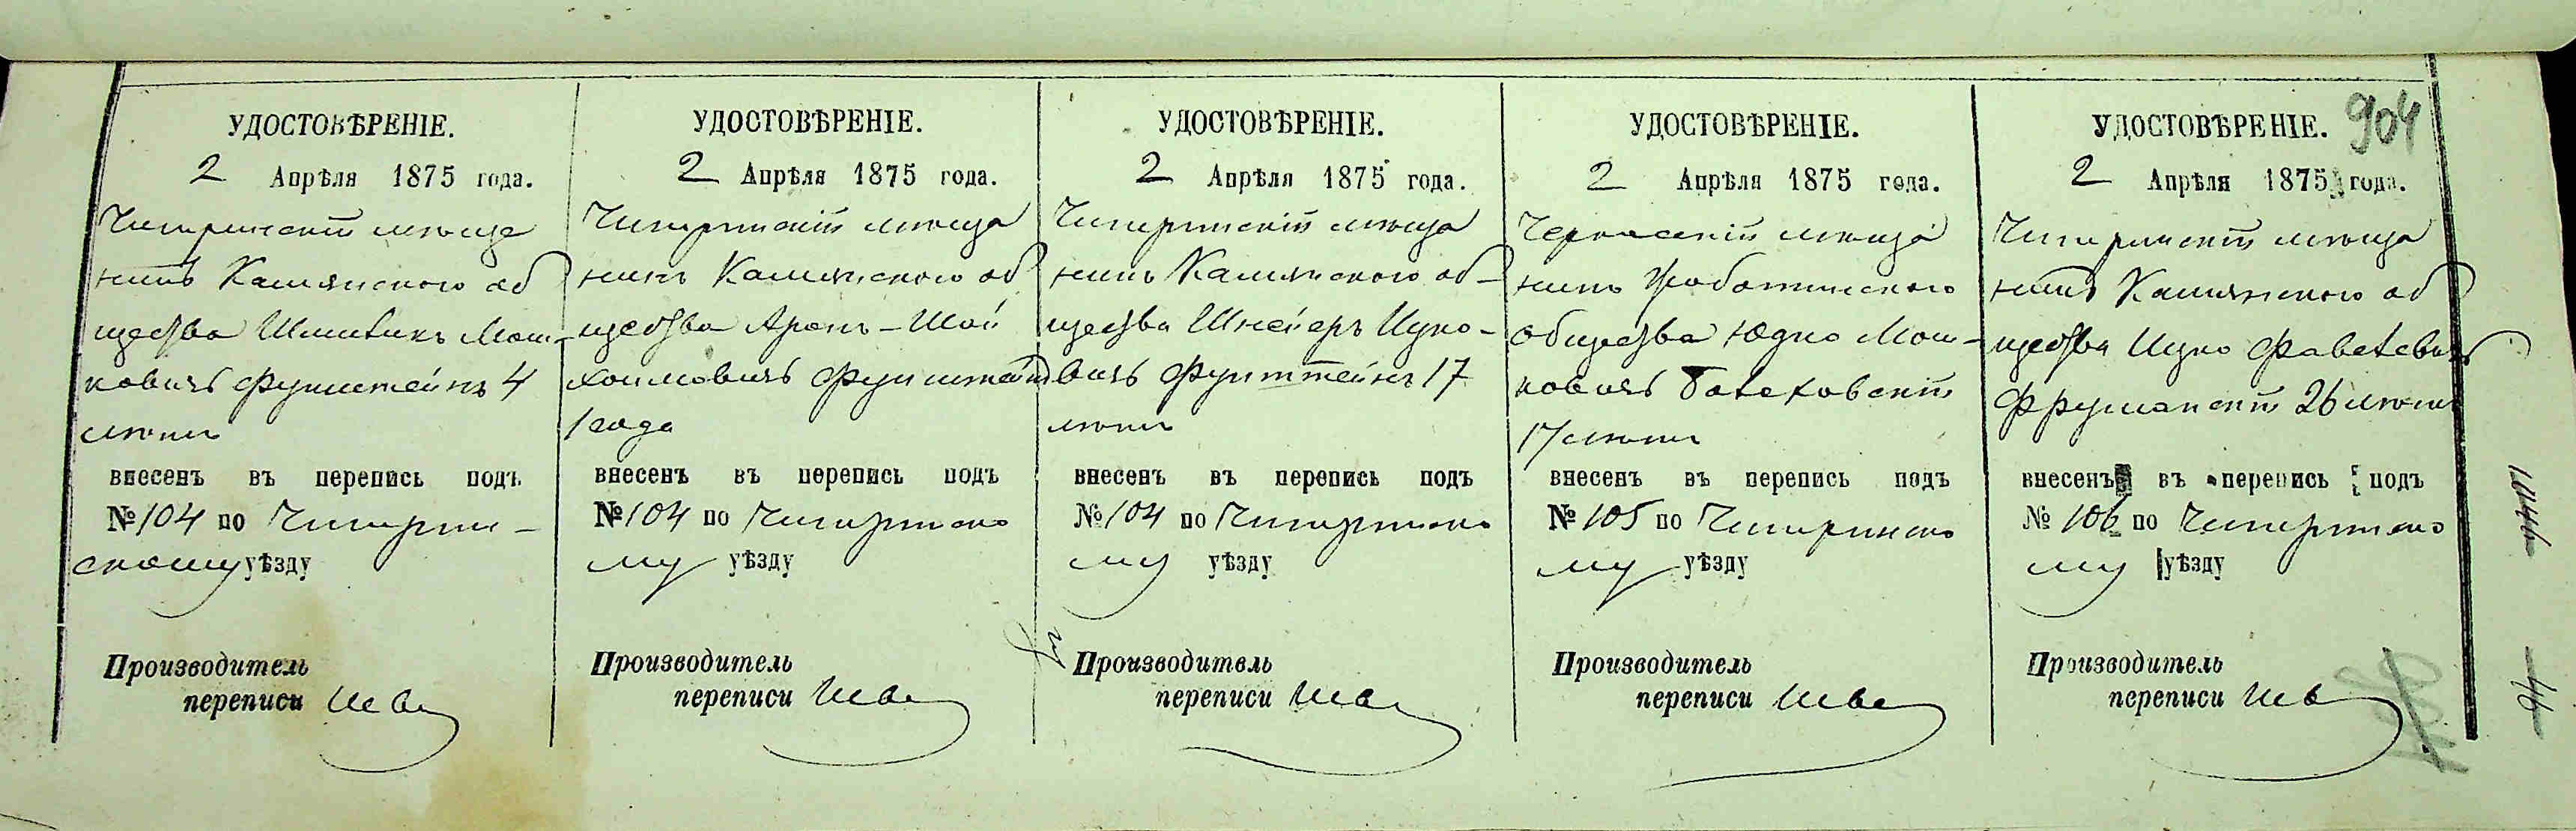 904
УДОСТОВѢРЕНІЕ.
2 Апрѣля 1875 года.
Чигиринскій мѣща
нинъ Камянского об
щества Шмиликъ Мош-
ковичъ Фунштейнъ 4
лѣтъ
внесенъ въ перепись подъ
№ 104 по Чигирин-
скому уѣзду
Производитель
переписи
УДОСТОВѢРЕНІЕ.
2 Апрѣля 1875 года.
Чигиринскій мѣща
нинъ Камянского об
щества Аронъ-Шой
хоимовичъ Фунштейнъ
1 года
внесенъ въ перепись подъ
№ 104 по Чигиринско
му уѣзду
Производитель
переписи
УДОСТОВѢРЕНІЕ.
2 Апрѣля 1875 года.
Чигиринскій мѣща
нинъ Камянского об-
щества Шнейеръ Ицко-
вичъ Фунштейнъ 17
лѣтъ
внесенъ въ перепись подъ
№ 104 по Чигиринско
му уѣзду
Производитель
переписи
УДОСТОВѢРЕНІЕ.
2 Апрѣля 1875 года.
Черкаскій мѣща
нинъ Жаботинского
общества Юдко Мош-
ковичъ
17 лѣтъ
внесенъ въ перепись подъ
№ 105 по Чигиринско
му уѣзду
Производитель
переписи
УДОСТОВѢРЕНІЕ.
2 Апрѣля 1875 года.
Чигиринскій мѣща
нинъ Камянского об
щества Ицко
26 лѣтъ
внесенъ въ перепись подъ
№ 106 по Чигиринско
му уѣзду
Производитель
переписи